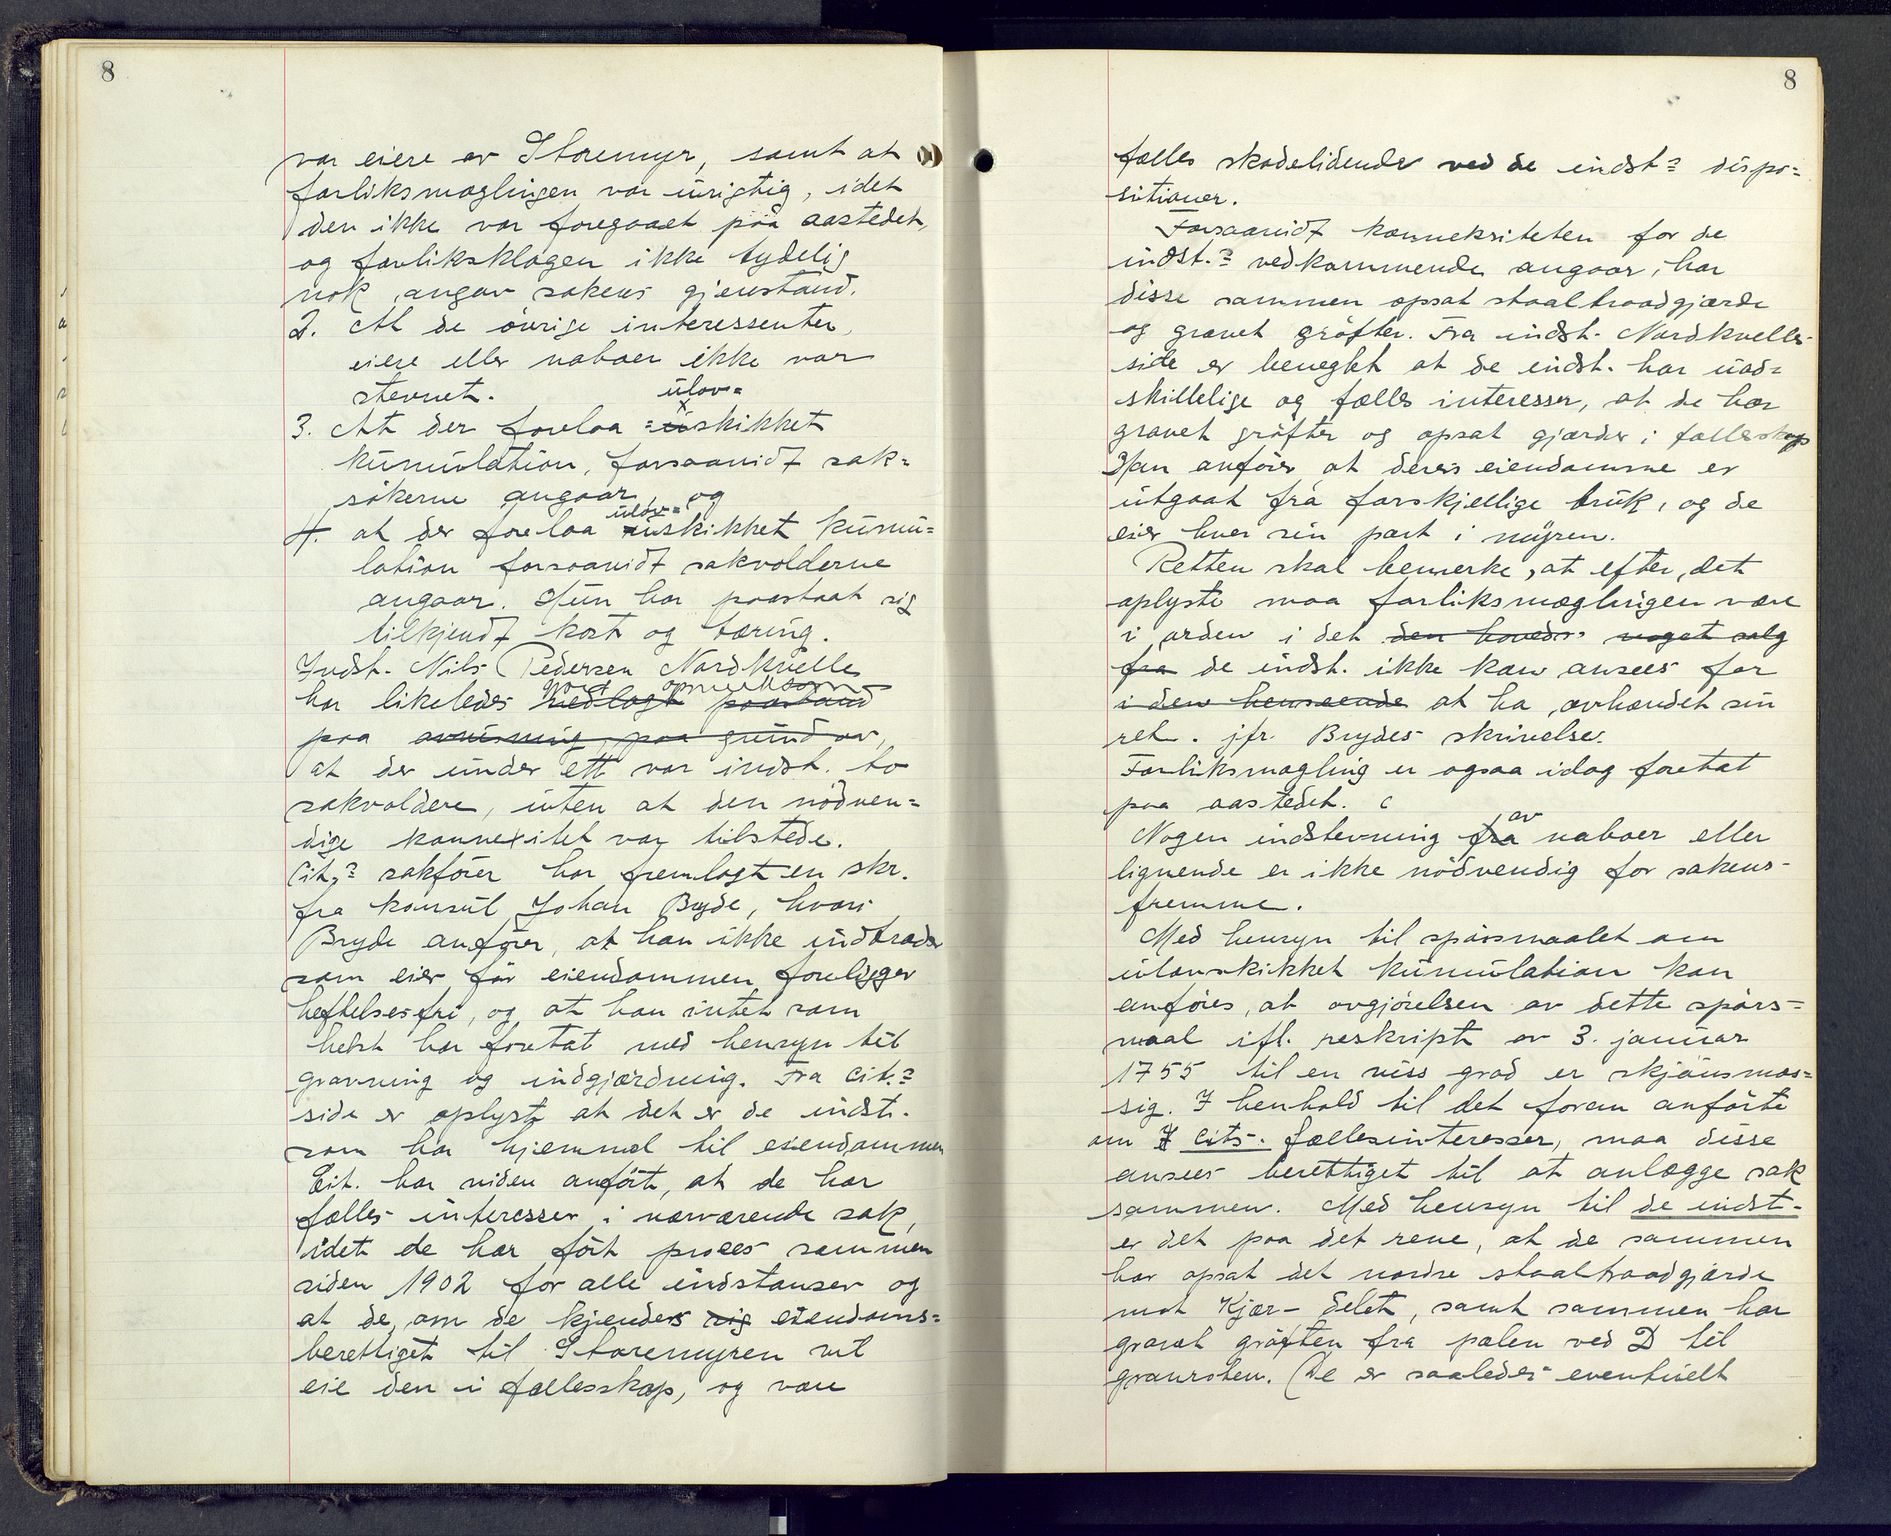 8
var eiere av Storemyr, samt at
forliksmæglingen var urigtig, idet
den ikke var foregaaet paa aastedet,
og forliksklagen ikke tydelig
nok angav sakens gjenstand.
2. At de övrige interessenter,
eiere eller naboer ikke var
stevnet.
ulov=
3. At der forelaa uskikket
kumulation, forsaavidt sak=
sökerne angaar, og
ulov=
4. at der forelaa uskikket kumu=
lation forsaavidt sakvolderne
angaar. Hun har paastaat sig
tilkjendt kost og tæring.
Indst. Nils Pedersen Nordkvelle
gjort opmerksom
har likeledes nedlagt paastand
paa avvisning paa grund av,
at der under ett var indst. to
sakvoldere, uten at den nödven=
dige konnexitet var tilstede.
Cit.s sakförer har fremlagt en skr.
fra konsul Johan Bryde, hvori
Bryde anförer, at han ikke indtræder
som eier för eiendommen foreligger
heftelsesfri, og at han intet som
helst har foretat med hensyn til
gravning og indgjærdning. Fra cit.s
side er oplyst at det er de indst.
som har hjemmel til eiendommen
Cit. har viden anfört, at de har
fælles interesser i nærværende sak,
idet de har fört proces sammen
siden 1902 for alle indstanser og
at de, om de kjendes sig eiendoms=
berettiget til Storemyren vil
eie den i fællesskap, og være
8
fælles skadelidende ved de indst.s dispo=
sitioner.
Forsaavidt konneksiteten for de
indst.s vedkommende angaar, har
disse sammen opsat staaltraadgjærde
og gravet gröfter. Fra indst. Nordkvelles
side er benegtet at de indst. har uad=
skillelige og fælles interesser, at de har
gravet gröfter og opsat gjærder i fællesskap
Han anförer at deres eiendomme er
utgaat fra forskjellige bruk, og de
eier hver sin part i myren.
Retten skal bemerke, at efter det
oplyste maa forliksmæglingen være
i orden i det den hoveds. noget salg
fra de indst. ikke kan ansees for
i den henseende at ha avhændet sin
ret. jfr. Brydes skrivelse.
Forliksmægling er ogsaa idag foretat
paa aastedet.
av
Nogen indstevning fra naboer eller
lignende er ikke nödvendig for sakens
fremme.
Med hensyn til spörsmaalet om
ulovskikket kumulation kan
anföres, at avgjörelsen av dette spörs=
maal ifl. reskript av 3. januar
1755 til en viss grad er skjönsmæs=
sig. I henhold til det foran anförte
om cits. fællesinteresser, maa disse
ansees berettiget til at anlægge sak
sammen. Med hensyn til de indst.
er det paa det rene, at de sammen
har opsat det nordre staaltraadgjærde
mot Kjær-delet, samt sammen har
gravet gröften fra pælen ved D til
granroten. (De er saaledes eventuelt